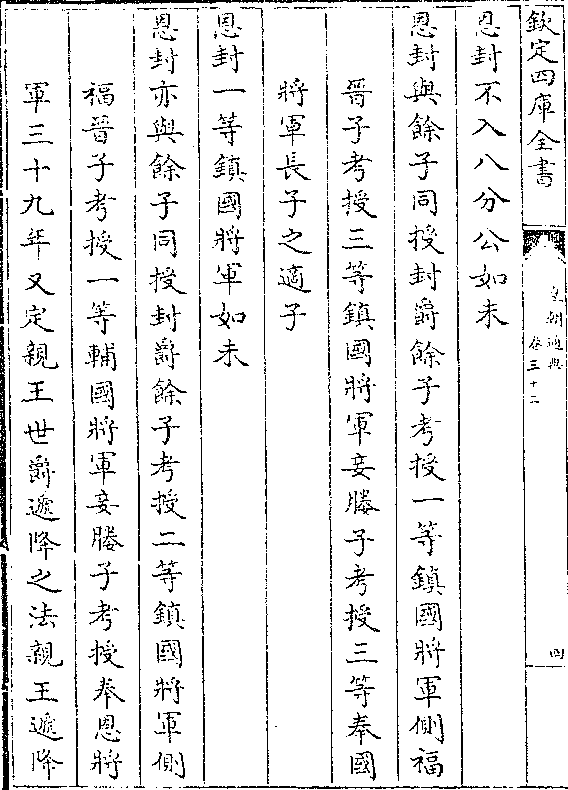 欽定四庫全書
皇朝通典
卷三十二
四
恩封不入八分公如未
恩封與餘子同授封爵餘子考授一等鎮國將軍側福
晉子考授三等鎮國將軍妾媵子考授三等奉國
將軍長子之適子
恩封一等鎮國將軍如未
恩封亦與餘子同授封爵餘子考授二等鎮國將軍側
福晉子考授一等輔國將軍妾媵子考授奉恩將
軍三十九年又定親王世爵遞降之法親王遞降